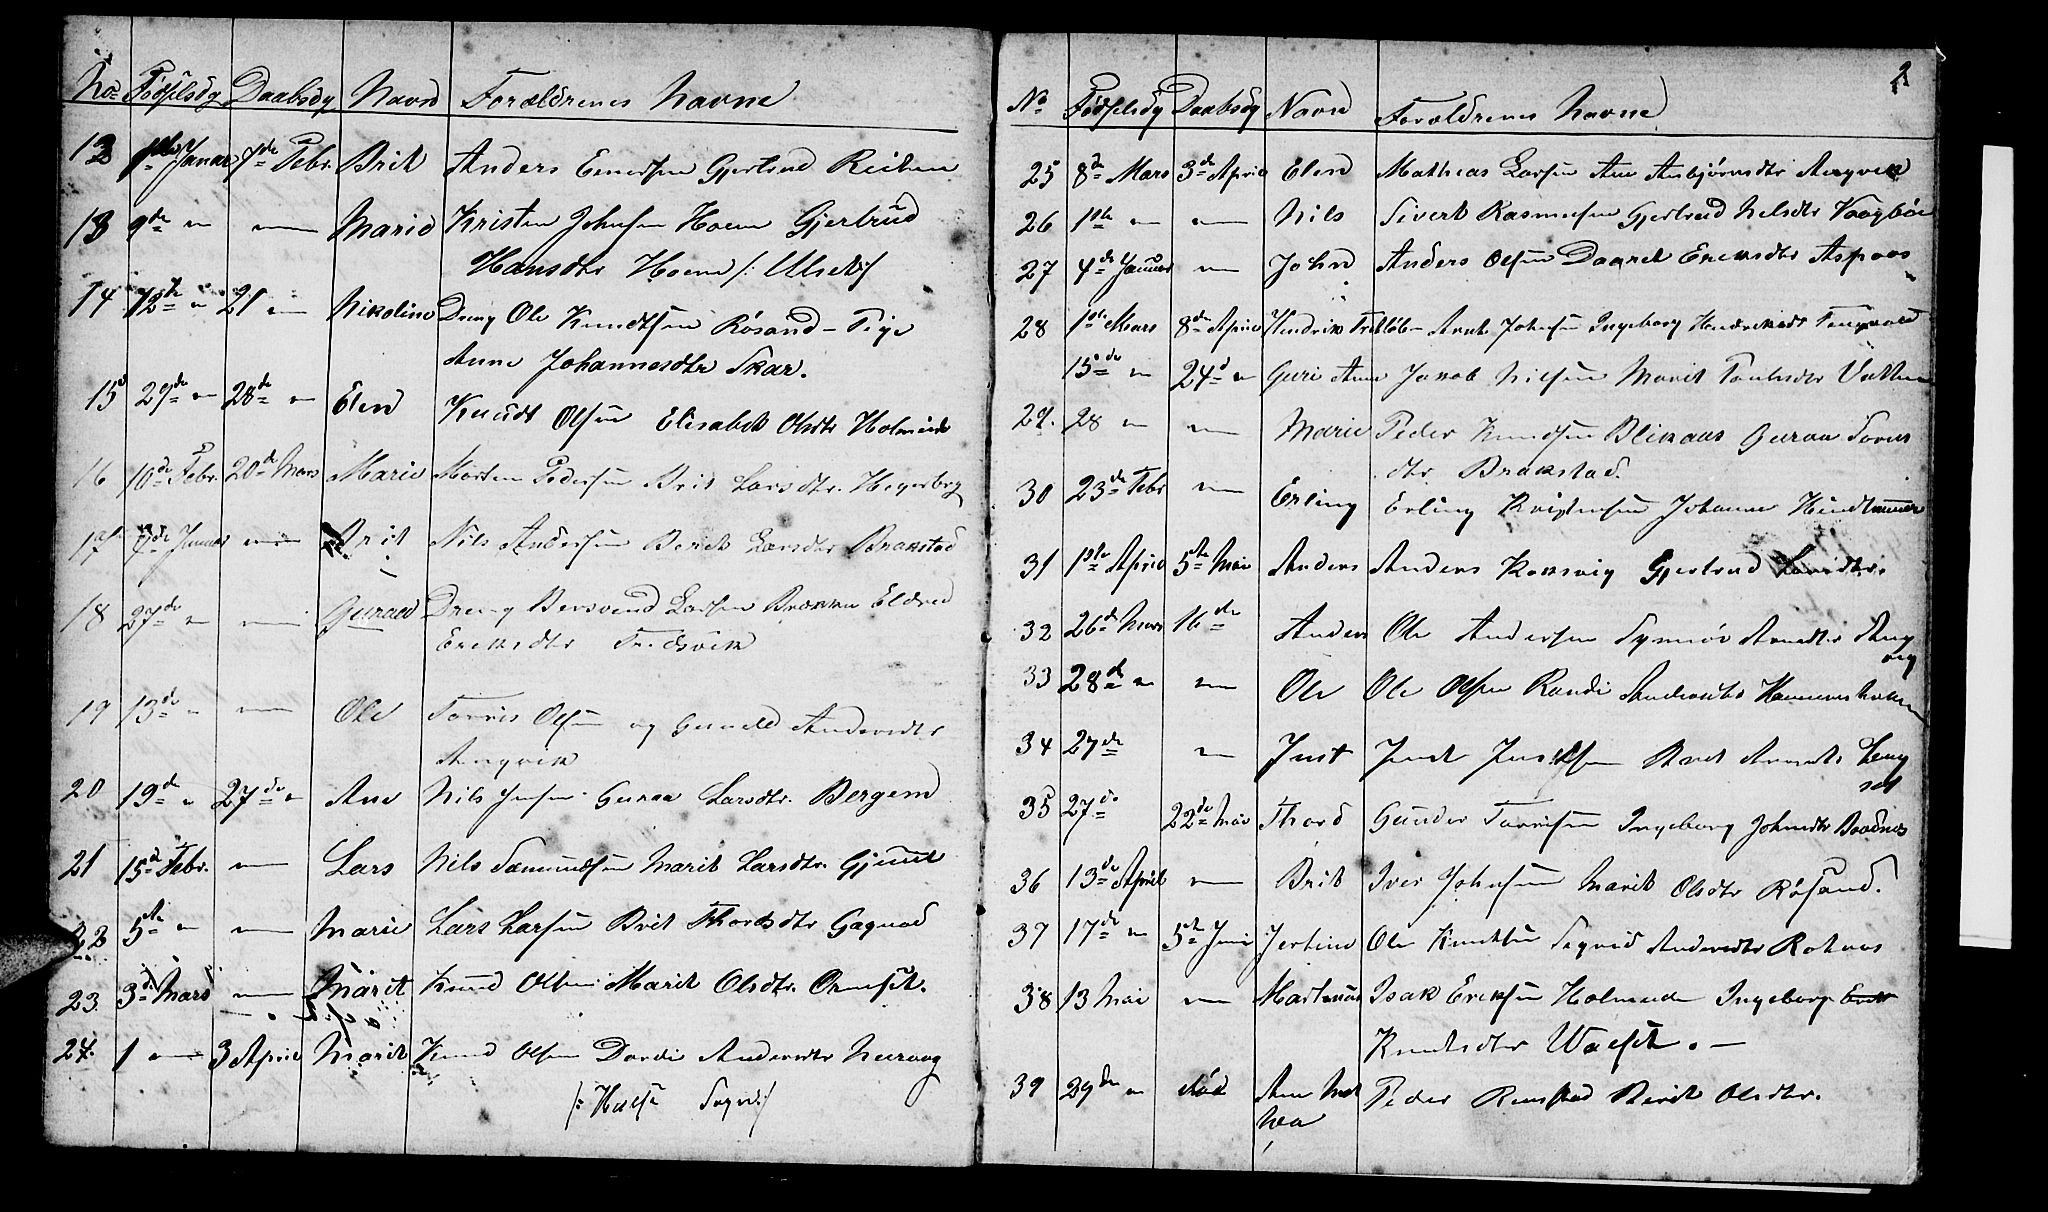 No Fødselsdg Daabsdg Navn Forældrenes Navne
12 1ste Januar 7de Febr. Brit Anders Gjertrud Reiten
13 9de " " Marie Kristen Johnsen Hoem Gjertrud
Hansdtr Hoem /: Ulset :/
14 12te " 21 " Nikoline Dreng Ole Knudtsen Røsand - Pige
Anne Johannesdtr Skar.
15 29de " 28de " Elen Knudt Olsen Elisabet Olsdtr
16 10de Febr. 20de Mars Marie Morten Pedersen Brit Larsdtr. Heyerberg
17 7de Januar " Brit Nils Andersen Beret Larsdtr Brakstad
18 27de " " Guraa Dreng Larsen Eldrid
Eriksdtr Fredsvik
19 13de " " Ole Torris Olsen og Gunild Andersdtr
Angvik
20 19de " 27de " Ane Nils Jensen Guraa Larsdtr. Bergem
21 15de Febr. " Lars Nils Samundsen Marit Larsdtr.
22 5te " " Marie Lars Larsen Brit Thordsdtr Gagnad
23 3de Mars " Marit Knud Olsen Marit Olsdtr. Ormset.
24. 1 " 3 April Marit Knud Olsen Dordi Andersdtr
/: Halse Sogn :/
2
No Fødselsdg Daabsdg Navn Forældrenes Navne
25 8de Mars 3de April Elen Mathias Larsen Ane Asbjørnsdtr Angvik
26 1ste " " Nils Sivert Rasmusen Gjertrud Nelsdtr Vaagbøe
27 4de Januar " John Anders Olsen Daaret Eriksdtr Aspaas
28 1ste Mars 8de April Hendrik Arnt Johnsen Ingeborg Hendriksdt
15de " 24d " Guri Ane Jakob Nilsen Marit Vatten
29. 28 " " Marie Peder Knudsen Blikaas Guraa
dtr Brakstad.
30 23de Febr " Erling Erling Kristensen Johanne
31 1ste April 5te Mai Anders Anders Korsvig Gjertrud
32 26de Mars 16de Anders Ole Andersen Synnøv Arntdtr Ang
vig
33 28de " " Ole Ole Olsen Randi
34 27de " Just Just Justsen Leng
set
35 27de 22de Mai Thord Gunder Torrisen Ingeborg Johnsdtr Boadnes
36 13de April " Brit Iver Johnsen Marit Olsdtr Røsand.
37 17de " 5te Juni Jertine Ole Knudtsen Andersdtr
38 13 Mai " Martinus Isak Eriksen Ingeborg
Knudsdtr Waaset. -
39 29de " død Ane Mat
hea Peder Berit Olsdtr.